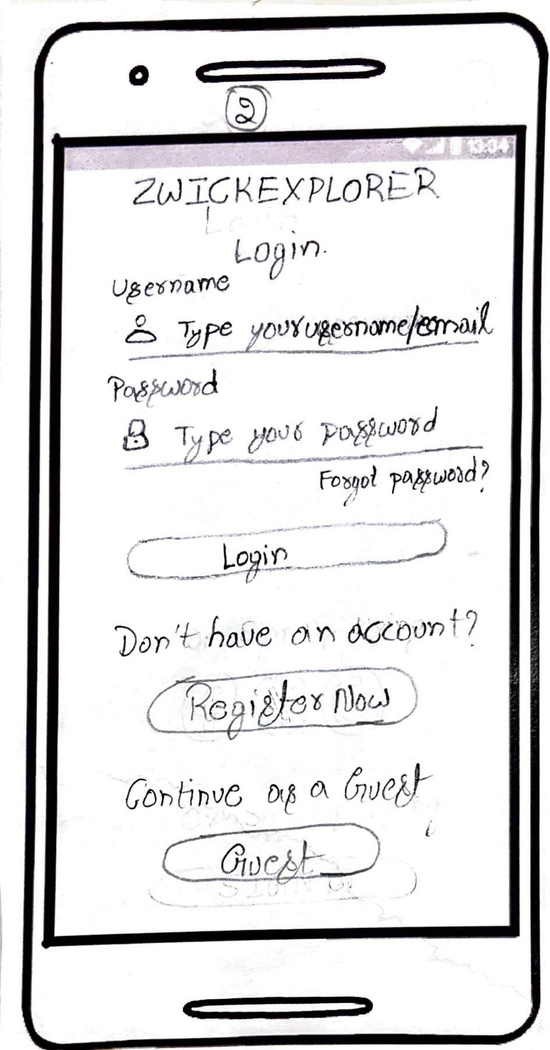 2
13:04
ZWICKEXPLORER
Login.
Username
Type your username/email
Password
Type your password
Forgot password?
Login
Don't have an account?
Register Now
Continue as a Guest
Guest